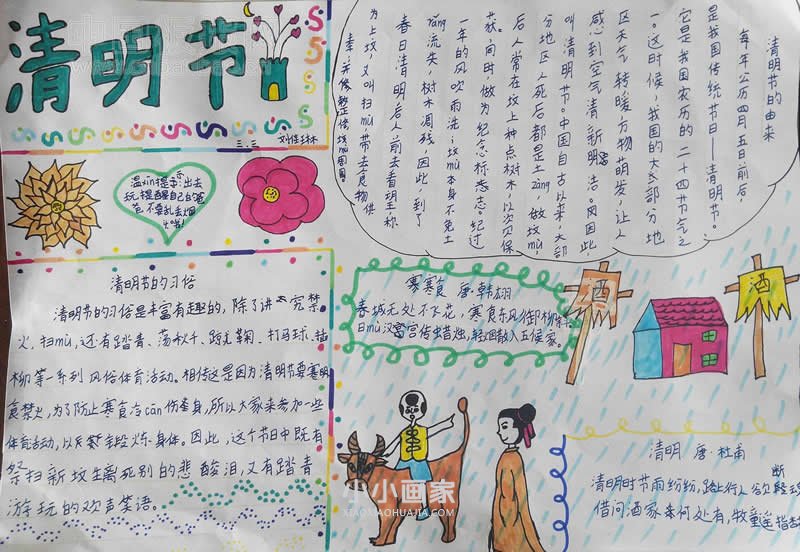 清明节
三.三
温xīn提示:出去
玩,提醒自己的爸
爸不要乱丢烟
火哦!
清明节的由来
每年公历四月五日前后,
是我国传统节日——清明节。
它是我国农历的二十四节气之
一。这时候,我国的大部分地
区天气转暖,万物萌发,让人
感到空气清新明洁。因此,
叫清明节。中国自古以来,大部
分地区人死后都是土zàng,做坟mù,
后人常在坟上种点树木,以次贝保
获。同时,做为纪念标志。经过
一年的风吹雨洗,坟mù本身不免土
rǎng流失,树木凋残,因此,到了
春日清明后人前去看望,称
为上坟,又叫扫mù带去食物供
清明节的习俗
清明节的习俗是丰富有趣的,除了讲究禁
火,扫mù,还有踏青、荡秋千、踢鞠、打马球、插
柳等一系列风俗体育活动。相传这是因为清明节要寒明
食禁火,为了防止寒食冷cān伤身,所以大家来参加一些
体育活动,以锻炼身体。因此,这个节日中既有
祭扫新坟生离死别的悲酸泪,又有踏青
游玩的欢声笑语。
寒食 唐·韩翃
春城无处不飞花,寒食东风御柳
日mù汉宫传蜡烛,轻烟散入五侯家。
酒
酒
清明 唐·杜甫
清明时节雨纷纷,路上行人欲断
借问酒家来何处有,牧童遥指
小小画家
XIAOMAOHUAJIA.COM